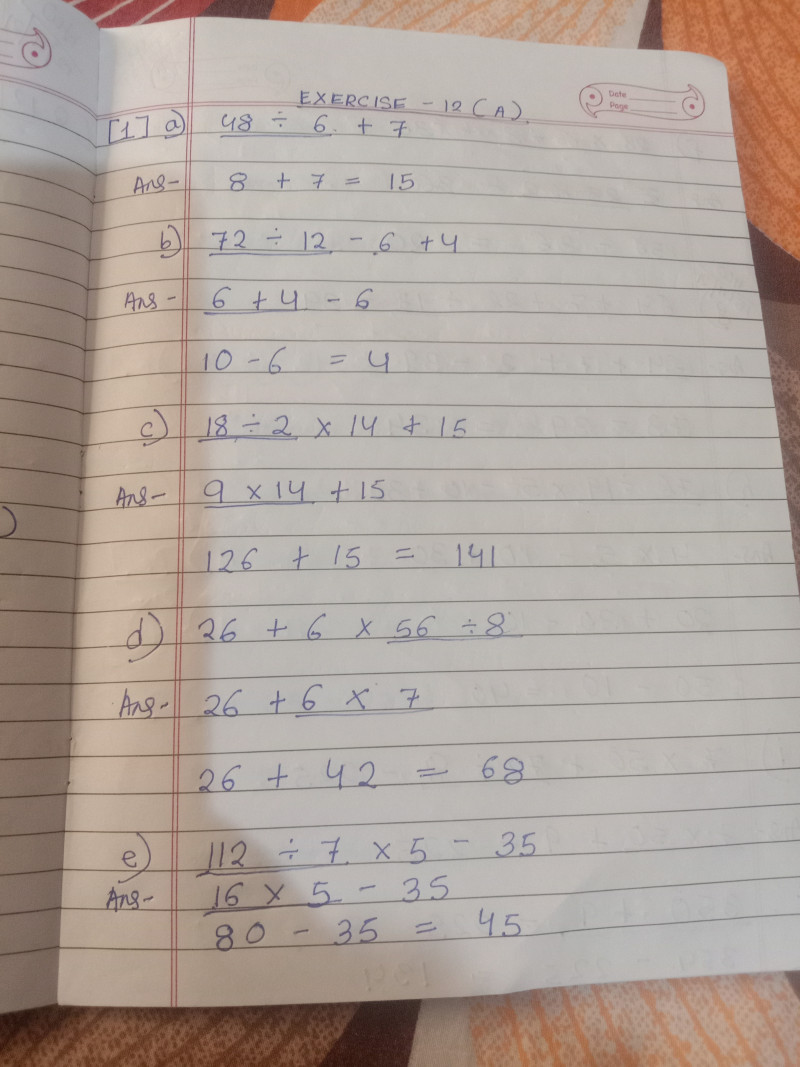 EXERCISE - 12 (A)
Date
Page
[1] a) 48 ÷ 6 + 7
Ans- 8 + 7 = 15
b) 72 ÷ 12 - 6 + 4
Ans- 6 + 4 - 6
10 - 6 = 4
c) 18 ÷ 2 × 14 + 15
Ans- 9 × 14 + 15
126 + 15 = 141
d) 26 + 6 × 56 ÷ 8
Ans- 26 + 6 × 7
26 + 42 = 68
e) 112 ÷ 7 × 5 - 35
Ans- 16 × 5 - 35
80 - 35 = 45